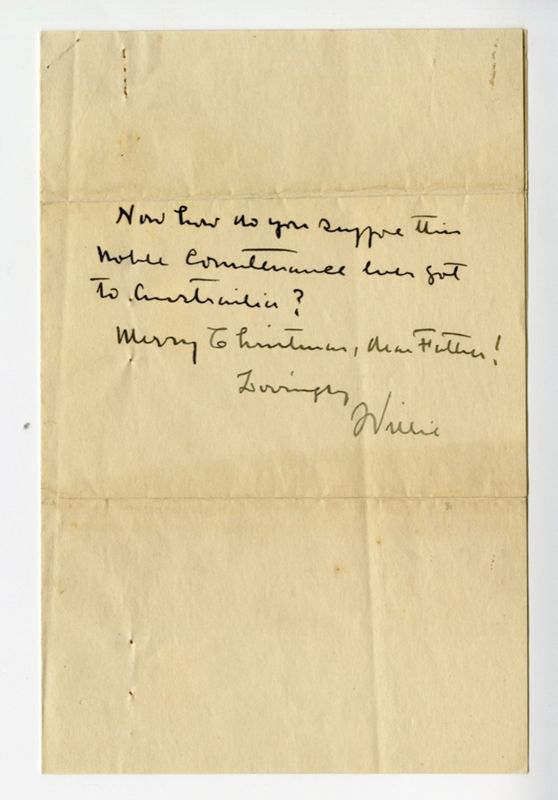 Now how do you suppose this
Noble Countenance ever got
to Australia?
Merry Christmas, dear Father!
Lovingly
Willie